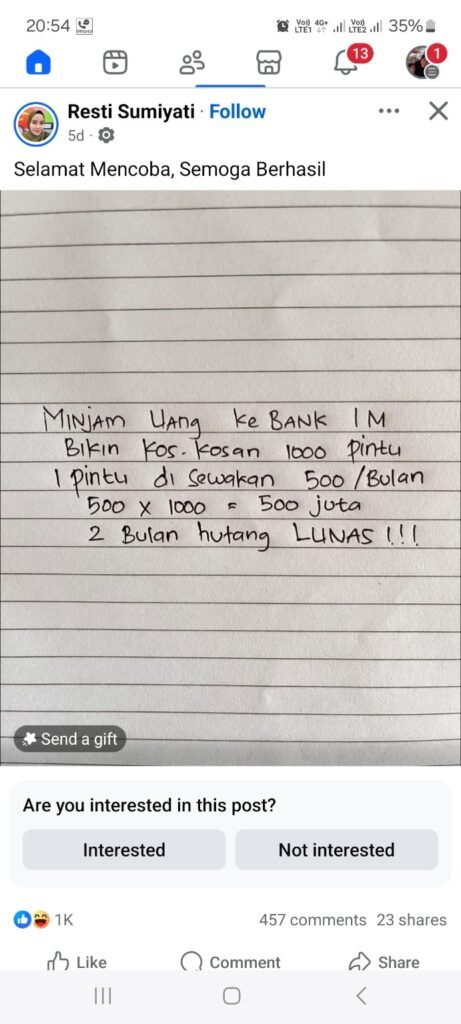 20:54 imoo Vo) LTE1 4G+ Vo) LTE2 35%
13 1
Resti Sumiyati · Follow
5d ·
Selamat Mencoba, Semoga Berhasil
MINJAM UANG ke BANK 1 M
BIKIN KOS-KOSAN 1000 pintu
1 pintu di sewakan 500/Bulan
500 x 1000 = 500 juta
2 Bulan hutang LUNAS !!!
Send a gift
Are you interested in this post?
Interested Not interested
1K 457 comments 23 shares
Like Comment Share